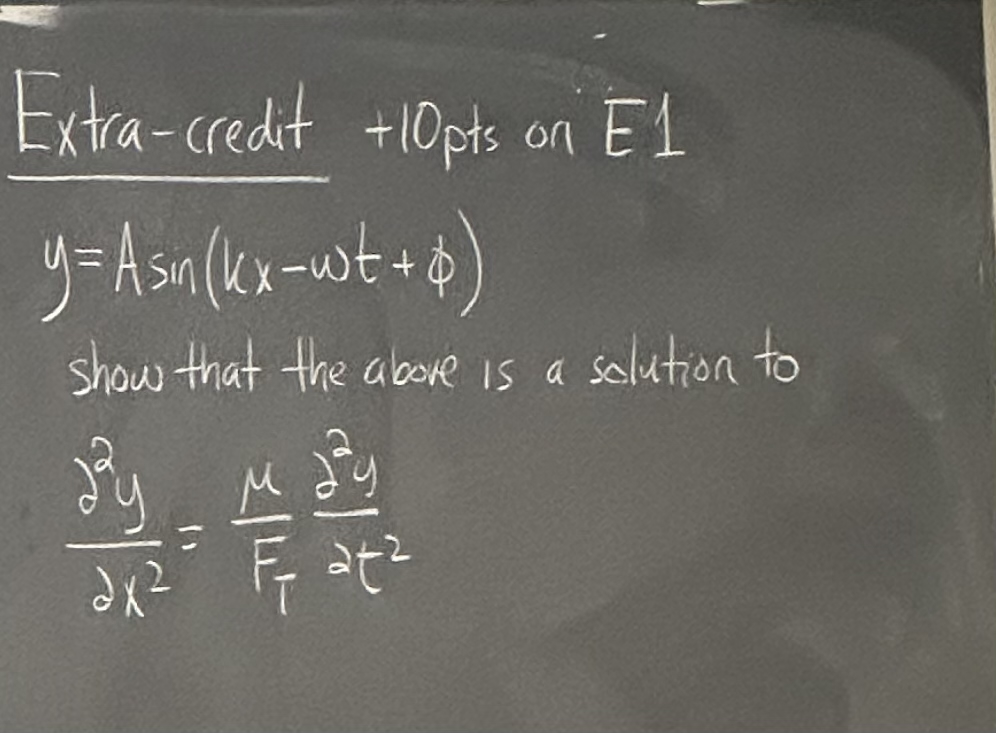 Extra-credit +10pts on E1
y=Asin(kx-ωt+ϕ)
show that the above is a solution to
∂²y/∂x² = μ/F_T ∂²y/∂t²